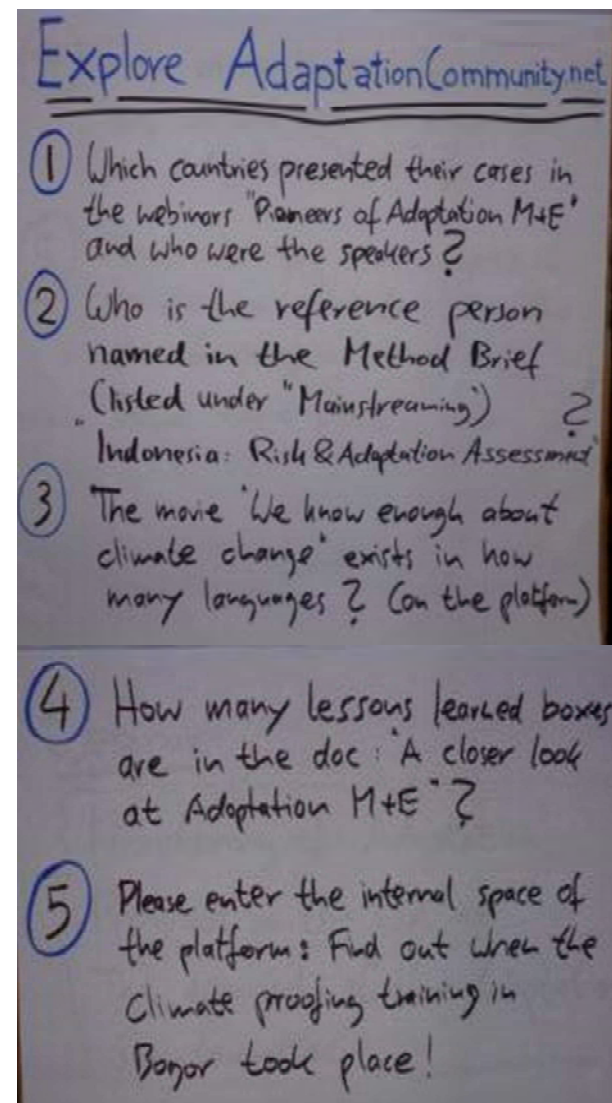 Explore AdaptationCommunity.net
1 Which countries presented their cases in
the webinars "Pioneers of Adaptation M+E"
and who were the speakers?
2 Who is the reference person
named in the Method Brief
(listed under "Mainstreaming") ?
"Indonesia: Risk & Adaptation Assessment"
3 The movie "We know enough about
climate change" exists in how
many languages? (on the platform)
4 How many lessons learned boxes
are in the doc: "A closer look
at Adaptation M+E"?
5 Please enter the internal space of
the platform: Find out when the
Climate proofing training in
Bogor took place!